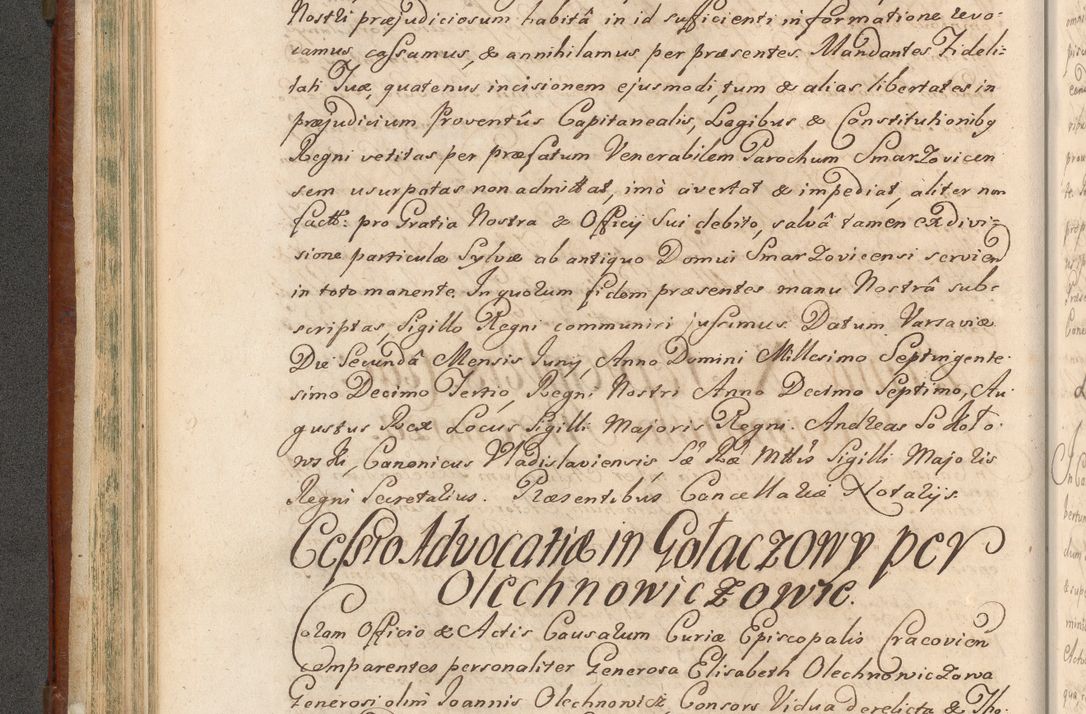 Nostri præjudiciosum habitâ in id sufficienti informatione revo=
camus, cassamus, & annihilamus per præsentes. Mandantes Fideli=
tati Tuæ, quatenus incisionem ejusmodi, tum & alias libertates in
præjudicium Proventûs Capitanealis, Legibus & Constitutionibq
Regni vetitas per præfatum Venerabilem Parochum Smarzovicen
sem usurpatas non admittat, imò avertat & impediat, aliter non
factt: pro Gratia Nostra & Officij Sui debito, salvâ tamen ex divi=
sione particulæ Sylvæ ab antiquo Domui Smarzovicensi servien
in toto manente. In quorum fidem præsentes manu Nostrâ sub=
scriptas, Sigillo Regni communiri jussimus. Datum Varsaviæ
Die Secundâ Mensis Junij, Anno Domini Millesimo Septingente=
simo Decimo Tertio, Regni Nostri Anno Decimo Septimo, Au
gustus Rex Locus Sigilli Majoris Regni. Andreas Sokoło=
wski, Canonicus Vladislaviensis, Sæ Ræ Mttis Sigilli Majoris
Regni Secretarius. Præsentibus Cancellariæ Notarijs.
Cessio Advocatiæ in Gołaczowy per
Olechnowiczowie.
Coram Officio & Actis Causarum Curiæ Episcopalis Cracovien
comparentes personaliter Generosa Elisabeth Olechnowiczowa
Generosi olim Joannis Olechnowicz Consors Vidua derelicta & Tho=